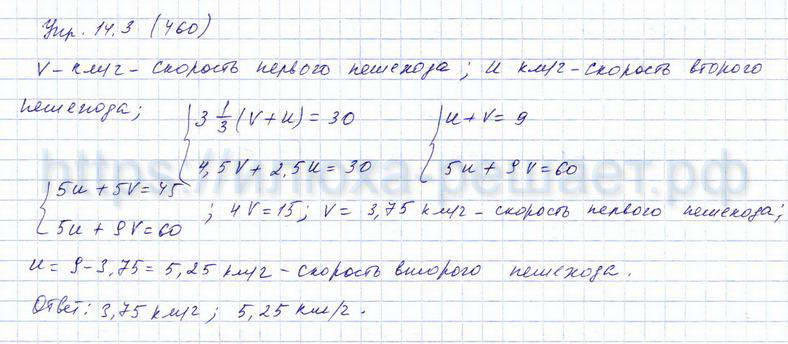 Упр. 14.3 (460)
V – км/г – скорость первого пешехода; u км/г – скорость второго
пешехода; { 3 1/3 (V + u) = 30 { u + V = 9
4,5V + 2,5u = 30 5u + 9V = 60
{ 5u + 5V = 45
5u + 9V = 60 ; 4V = 15; V = 3,75 км/г – скорость первого пешехода;
u = 9 – 3,75 = 5,25 км/г – скорость второго пешехода.
Ответ: 3,75 км/г; 5,25 км/г.
https://илюха-решает.рф